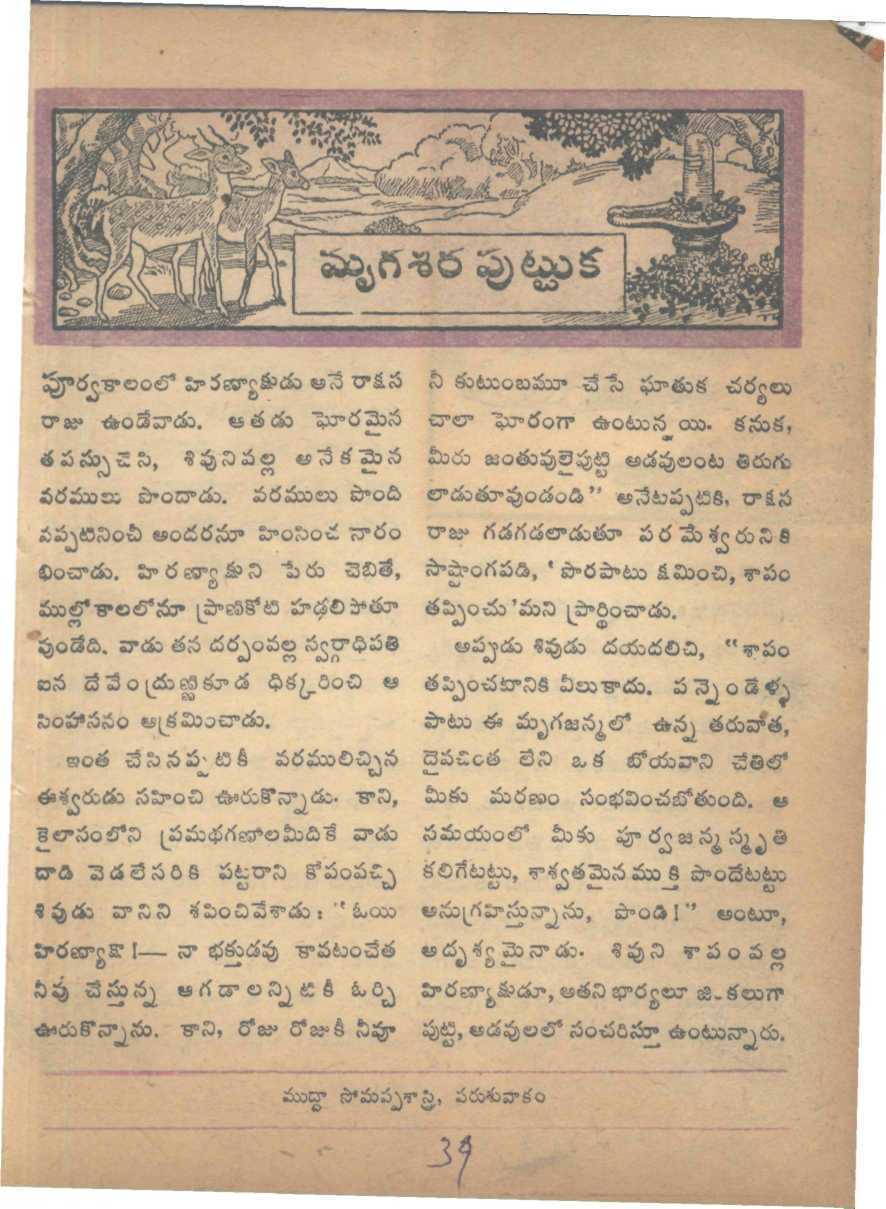 మృగశిర పుట్టుక
పూర్వకాలంలో హిరణ్యాక్షుడు అనే రాక్షస
రాజు ఉండేవాడు. ఆతడు ఘోరమైన
తపస్సుచేసి, శివునివల్ల అనేకమైన
వరములు పొందాడు. వరములు పొంది
నప్పటినించీ అందరనూ హింసించ నారం
భించాడు. హిరణ్యాక్షుని పేరు చెబితే,
ముల్లోకాలలోనూ ప్రాణికోటి హడలిపోతూ
వుండేది. వాడు తన దర్పంవల్ల స్వర్గాధిపతి
ఐన దేవేంద్రుణ్ణికూడ ధిక్కరించి ఆ
సింహాసనం ఆక్రమించాడు.
ఇంత చేసినప్పటికీ వరములిచ్చిన
ఈశ్వరుడు సహించి ఊరుకొన్నాడు. కాని,
కైలాసంలోని ప్రమథగణాలమీదికే వాడు
దాడి వెడలేసరికి పట్టరాని కోపంవచ్చి
శివుడు వానిని శపించివేశాడు: "ఓయి
హిరణ్యాక్షా!— నా భక్తుడవు కావటంచేత
నీవు చేస్తున్న ఆగడాలన్నిటికీ ఓర్చి
ఊరుకొన్నాను. కాని, రోజు రోజుకీ నీవూ
నీ కుటుంబమూ చేసే ఘాతుక చర్యలు
చాలా ఘోరంగా ఉంటున్నయి. కనుక,
మీరు జంతువులైపుట్టి అడవులంట తిరుగు
లాడుతూవుండండి" అనేటప్పటికి, రాక్షస
రాజు గడగడలాడుతూ పరమేశ్వరునికి
సాష్టాంగపడి, 'పొరపాటు క్షమించి, శాపం
తప్పించు'మని ప్రార్థించాడు.
అప్పుడు శివుడు దయదలిచి, "శాపం
తప్పించటానికి వీలుకాదు. పన్నెండేళ్ళ
పాటు ఈ మృగజన్మలో ఉన్న తరువాత,
దైవచింత లేని ఒక బోయవాని చేతిలో
మీకు మరణం సంభవించబోతుంది. ఆ
సమయంలో మీకు పూర్వజన్మస్మృతి
కలిగేటట్టు, శాశ్వతమైనముక్తి పొందేటట్టు
అనుగ్రహిస్తున్నాను, పొండి!" అంటూ,
అదృశ్యమైనాడు. శివుని శాపంవల్ల
హిరణ్యాక్షుడూ, ఆతని భార్యలూ జింకలుగా
పుట్టి, అడవులలో సంచరిస్తూ ఉంటున్నారు.
ముద్దా సోమప్పశాస్త్రి, పరుశువాకం
39